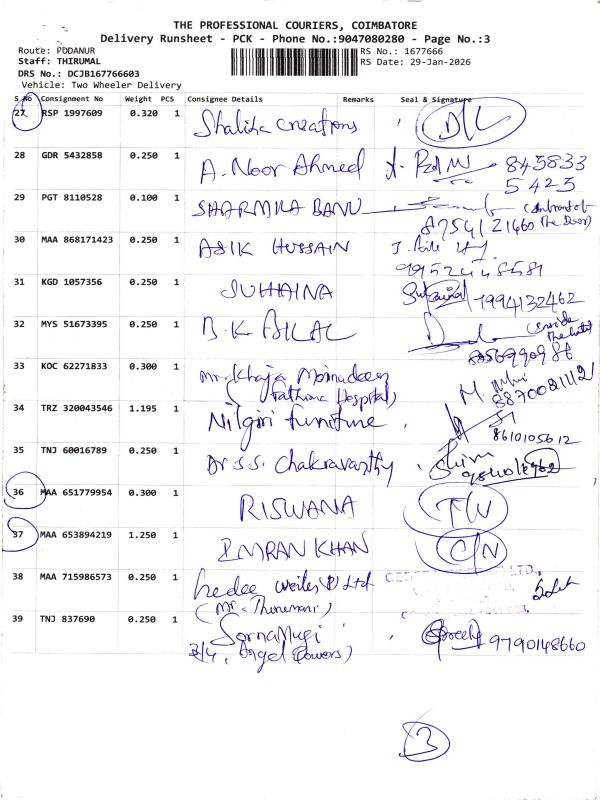 THE PROFESSIONAL COURIERS, COIMBATORE
Delivery Runsheet - PCK - Phone No.:9047080280 - Page No.:3
Route: PODANUR
RS No.: 1677666
Staff: THIRUMAL
RS Date: 29-Jan-2026
DRS No.: DCJB167766603
Vehicle: Two Wheeler Delivery
S No Consignment No Weight PCS Consignee Details Remarks Seal & Signature
27 RSP 1997609 0.320 1 Shaliha Creations D/L
28 GDR 5432858 0.250 1 A. Noor Ahmed 845833
5425
29 PGT 8110528 0.100 1 SHARMILA BANU
8754121460 the Door)
30 MAA 868171423 0.250 1 ASIK HUSSAIN
9952448581
31 KGD 1057356 0.250 1 SUHAINA 7994132462
32 MYS 51673395 0.250 1 B.K BILAL
33 KOC 62271833 0.300 1 Mr. Khaja Moinudeen
(Fathima Hospital) 8870081112
34 TRZ 320043546 1.195 1 Nilgiri furniture
8610105612
35 TNJ 60016789 0.250 1 Dr S.S. Chakravarthy
36 MAA 651779954 0.300 1 RISWANA T/N
37 MAA 653894219 1.250 1 IMRAN KHAN C/N
38 MAA 715986573 0.250 1 Ltd
39 TNJ 837690 0.250 1 SornaMugi
3/4, Angel Flowers) 9790148660
3